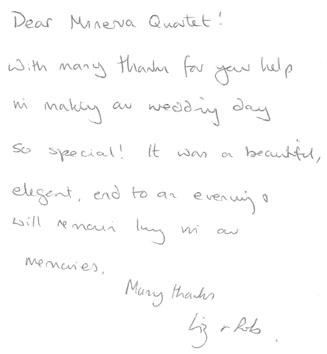 Dear Minerva Quartet!
With many thanks for your help
in making our wedding day
so special! It was a beautiful,
elegant, end to an evening &
will remain long in our
memories.
Many thanks
Liz & Rob.